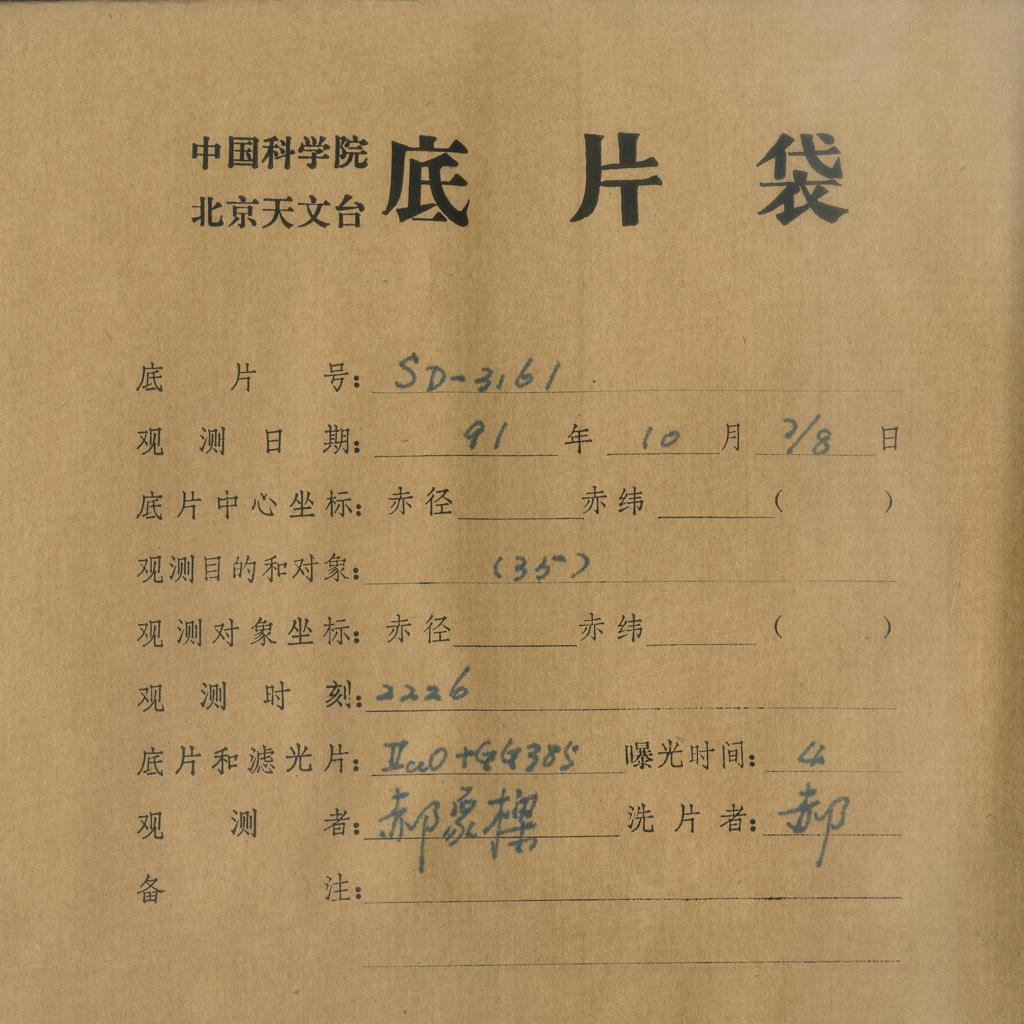 中国科学院
北京天文台 底片袋
底片号: SD-3161
观测日期: 91年 10月 7/8日
底片中心坐标: 赤径 赤纬 ( )
观测目的和对象: (35)
观测对象坐标: 赤径 赤纬 ( )
观测时刻: 2226
底片和滤光片: IIaO+GG385 曝光时间: 4
观测者: 郝象樑 洗片者: 郝
备注: